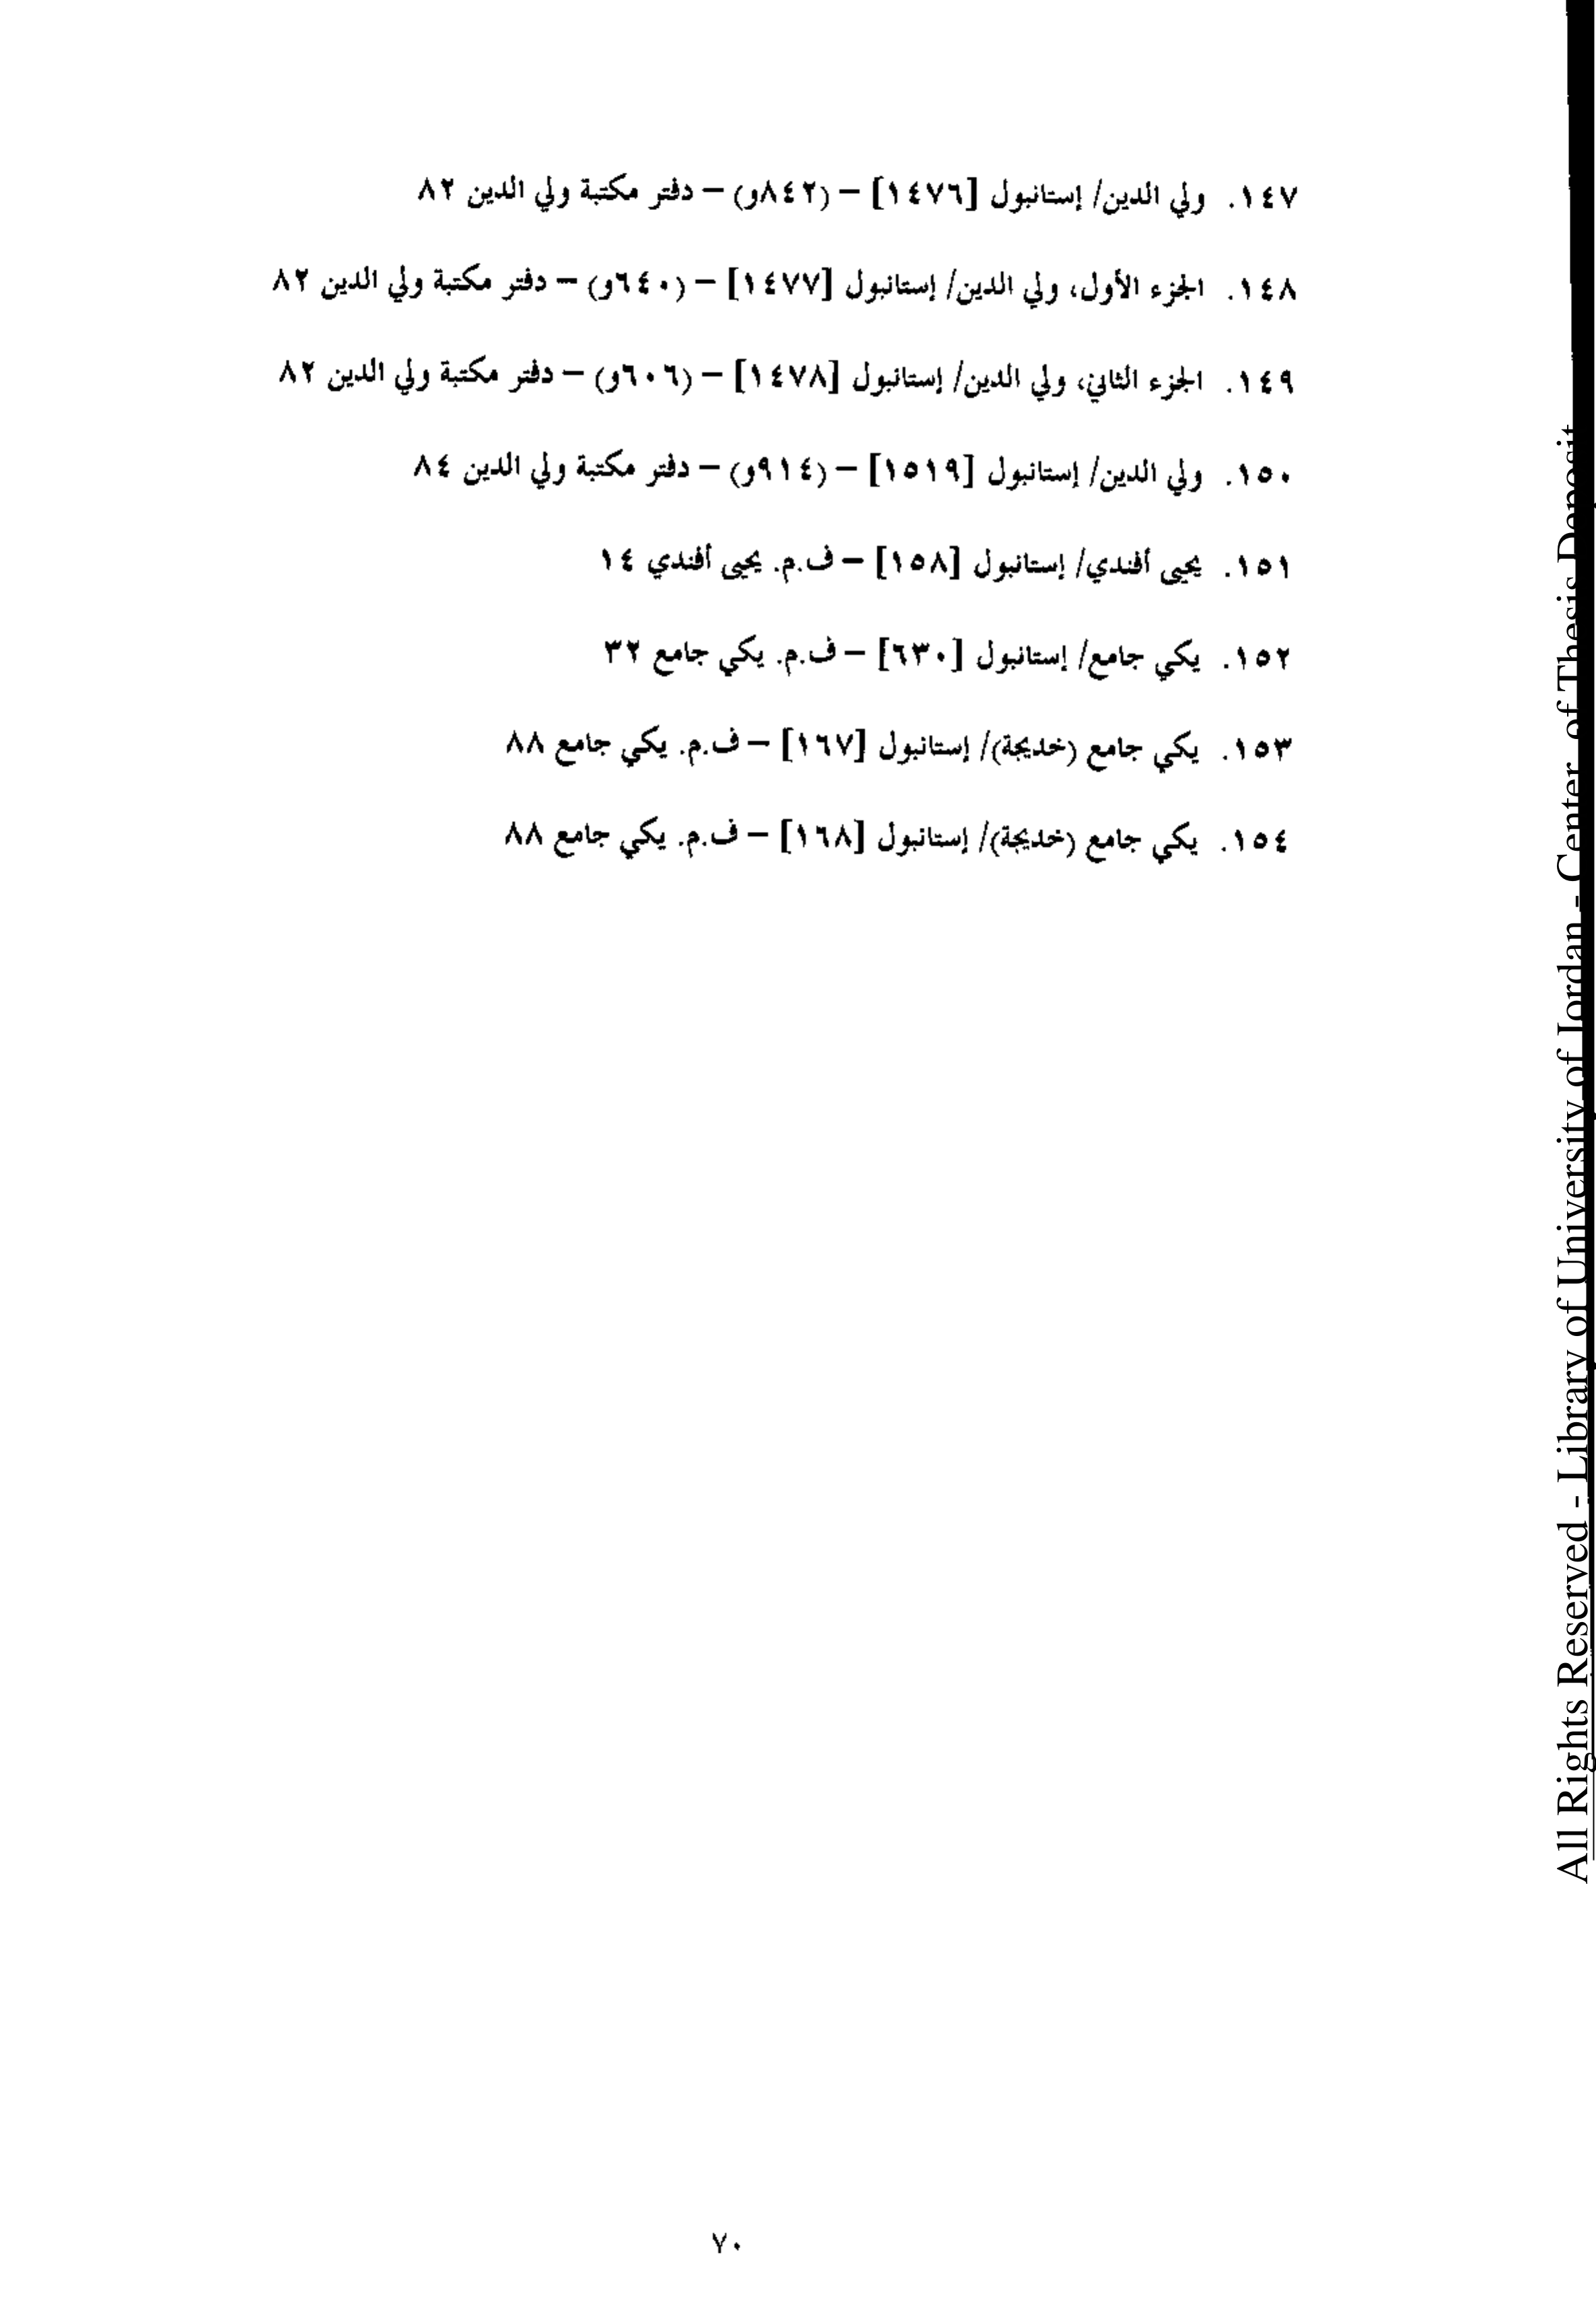 ١٤٧. ولي الدين/ إستانبول [١٤٧٦] – (٨٤٢و) – دفتر مكتبة ولي الدين ٨٢
١٤٨. الجزء الأول، ولي الدين/ إستانبول [١٤٧٧] – (٦٤٠و) – دفتر مكتبة ولي الدين ٨٢
١٤٩. الجزء الثاني، ولي الدين/ إستانبول [١٤٧٨] – (٦٠٦و) – دفتر مكتبة ولي الدين ٨٢
١٥٠. ولي الدين/ إستانبول [١٥١٩] – (٩١٤و) – دفتر مكتبة ولي الدين ٨٤
١٥١. يحيى أفندي/ إستانبول [١٥٨] – ف.م. يحيى أفندي ١٤
١٥٢. يكي جامع/ إستانبول [٦٣٠] – ف.م. يكي جامع ٣٢
١٥٣. يكي جامع (خديجة)/ إستانبول [١٦٧] – ف.م. يكي جامع ٨٨
١٥٤. يكي جامع (خديجة)/ إستانبول [١٦٨] – ف.م. يكي جامع ٨٨
٧٠
All Rights Reserved - Library of University of Jordan - Center of Thesis Deposit